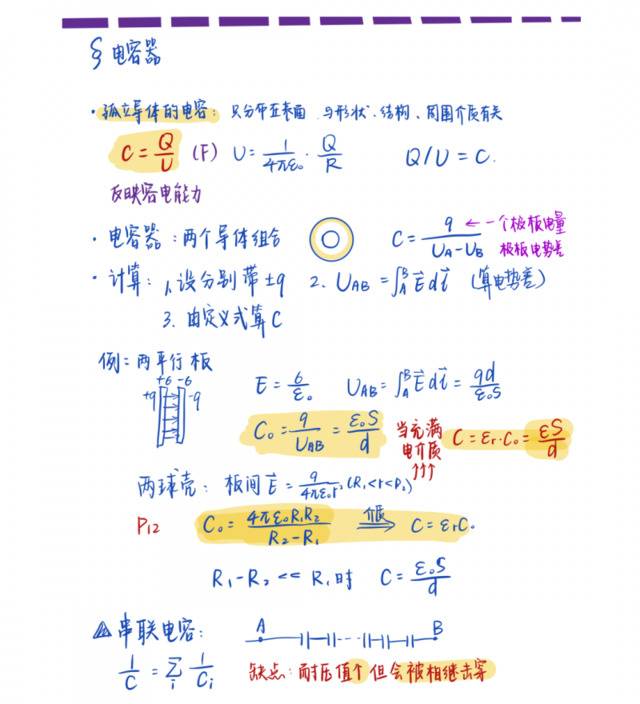 § 电容器
· 孤立导体的电容: 只分布在表面 与形状、结构、周围介质有关
C = Q/U (F) U = 1/4πε₀ · Q/R Q/U = C.
反映容电能力
· 电容器: 两个导体组合 C = q/(U_A - U_B) ← 一个极板电量 极板电势差
· 计算: 1. 设分别带 ±q 2. U_AB = ∫_A^B E⃗ dl⃗ (算电势差)
3. 由定义式算 C
例: 两平行板
+σ -σ
+q -q
E = σ/ε₀ U_AB = ∫_A^B E⃗ dl⃗ = qd/ε₀S
C₀ = q/U_AB = ε₀S/d 当充满电介质 ↑↑↑ C = εr·C₀ = εS/d
两球壳: 板间 E⃗ = q/4πε₀r² (R₁<r<R₂)
P12 C₀ = 4πε₀R₁R₂/(R₂-R₁) 介质 ⟹ C = εrC₀
R₁-R₂ << R₁时 C = ε₀S/d
串联电容: A B
1/C = Σ_i 1/C_i 缺点: 耐压值个 但会被相继击穿